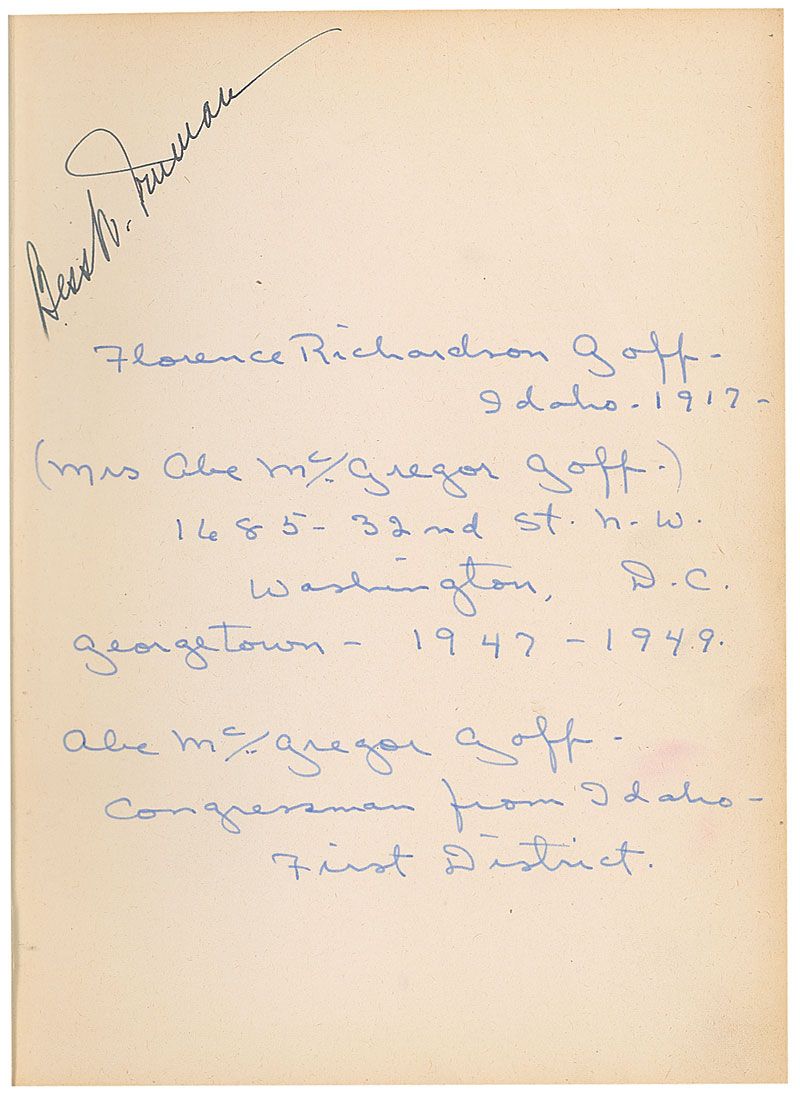 Bess W. Truman
Florence Richardson Goff-
Idaho-1917-
(Mrs Abe Mc/. Gregor Goff.)
1685-32nd St. N.W.
Washington, D.C.
Georgetown - 1947 -1949.
Abe Mc/. Gregor Goff-
Congressman from Idaho-
First District.